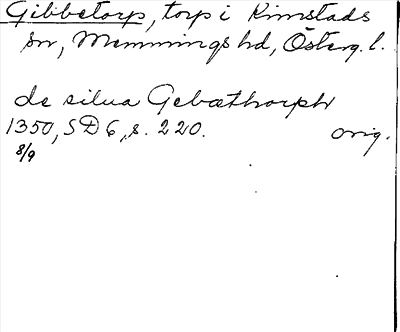 Gibbetorp, torp i Kimstads
sn, Memmings hd, Österg. l.
de silua Gebæthorph
1350, SD 6, s. 220. orig.
8/9